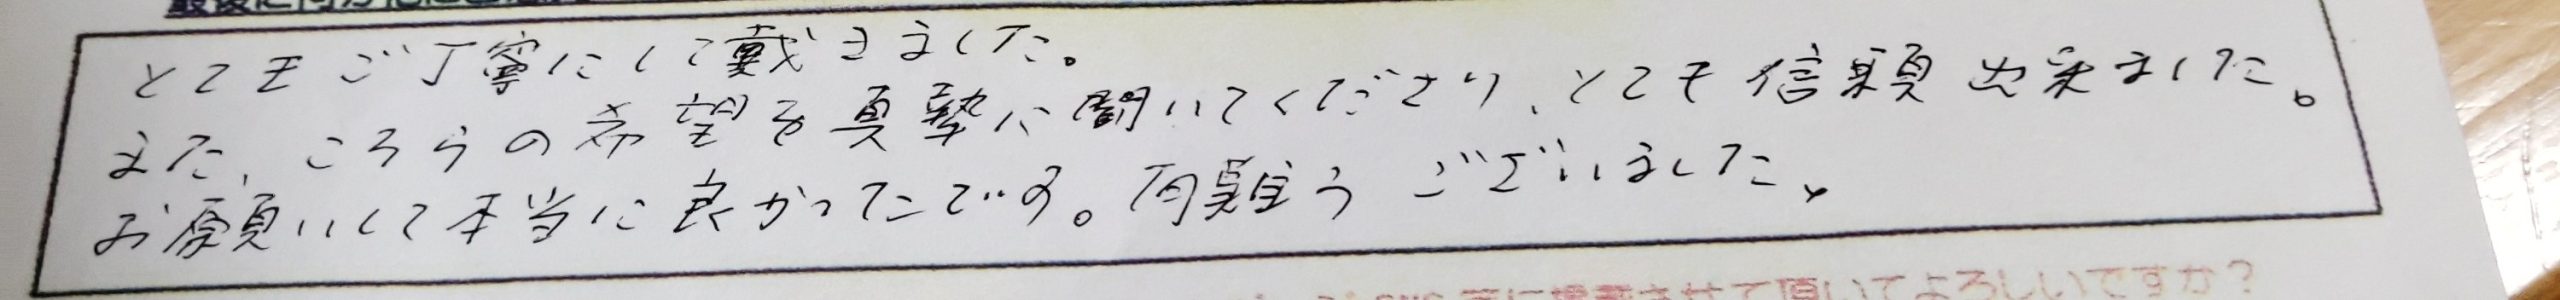 とてもご丁寧にして戴きました。
また、こちらの希望を真摯に聞いてくださり、とても信頼出来ました。
お願いして本当に良かったです。有難うございました。
に掲載させて頂いてよろしいですか？